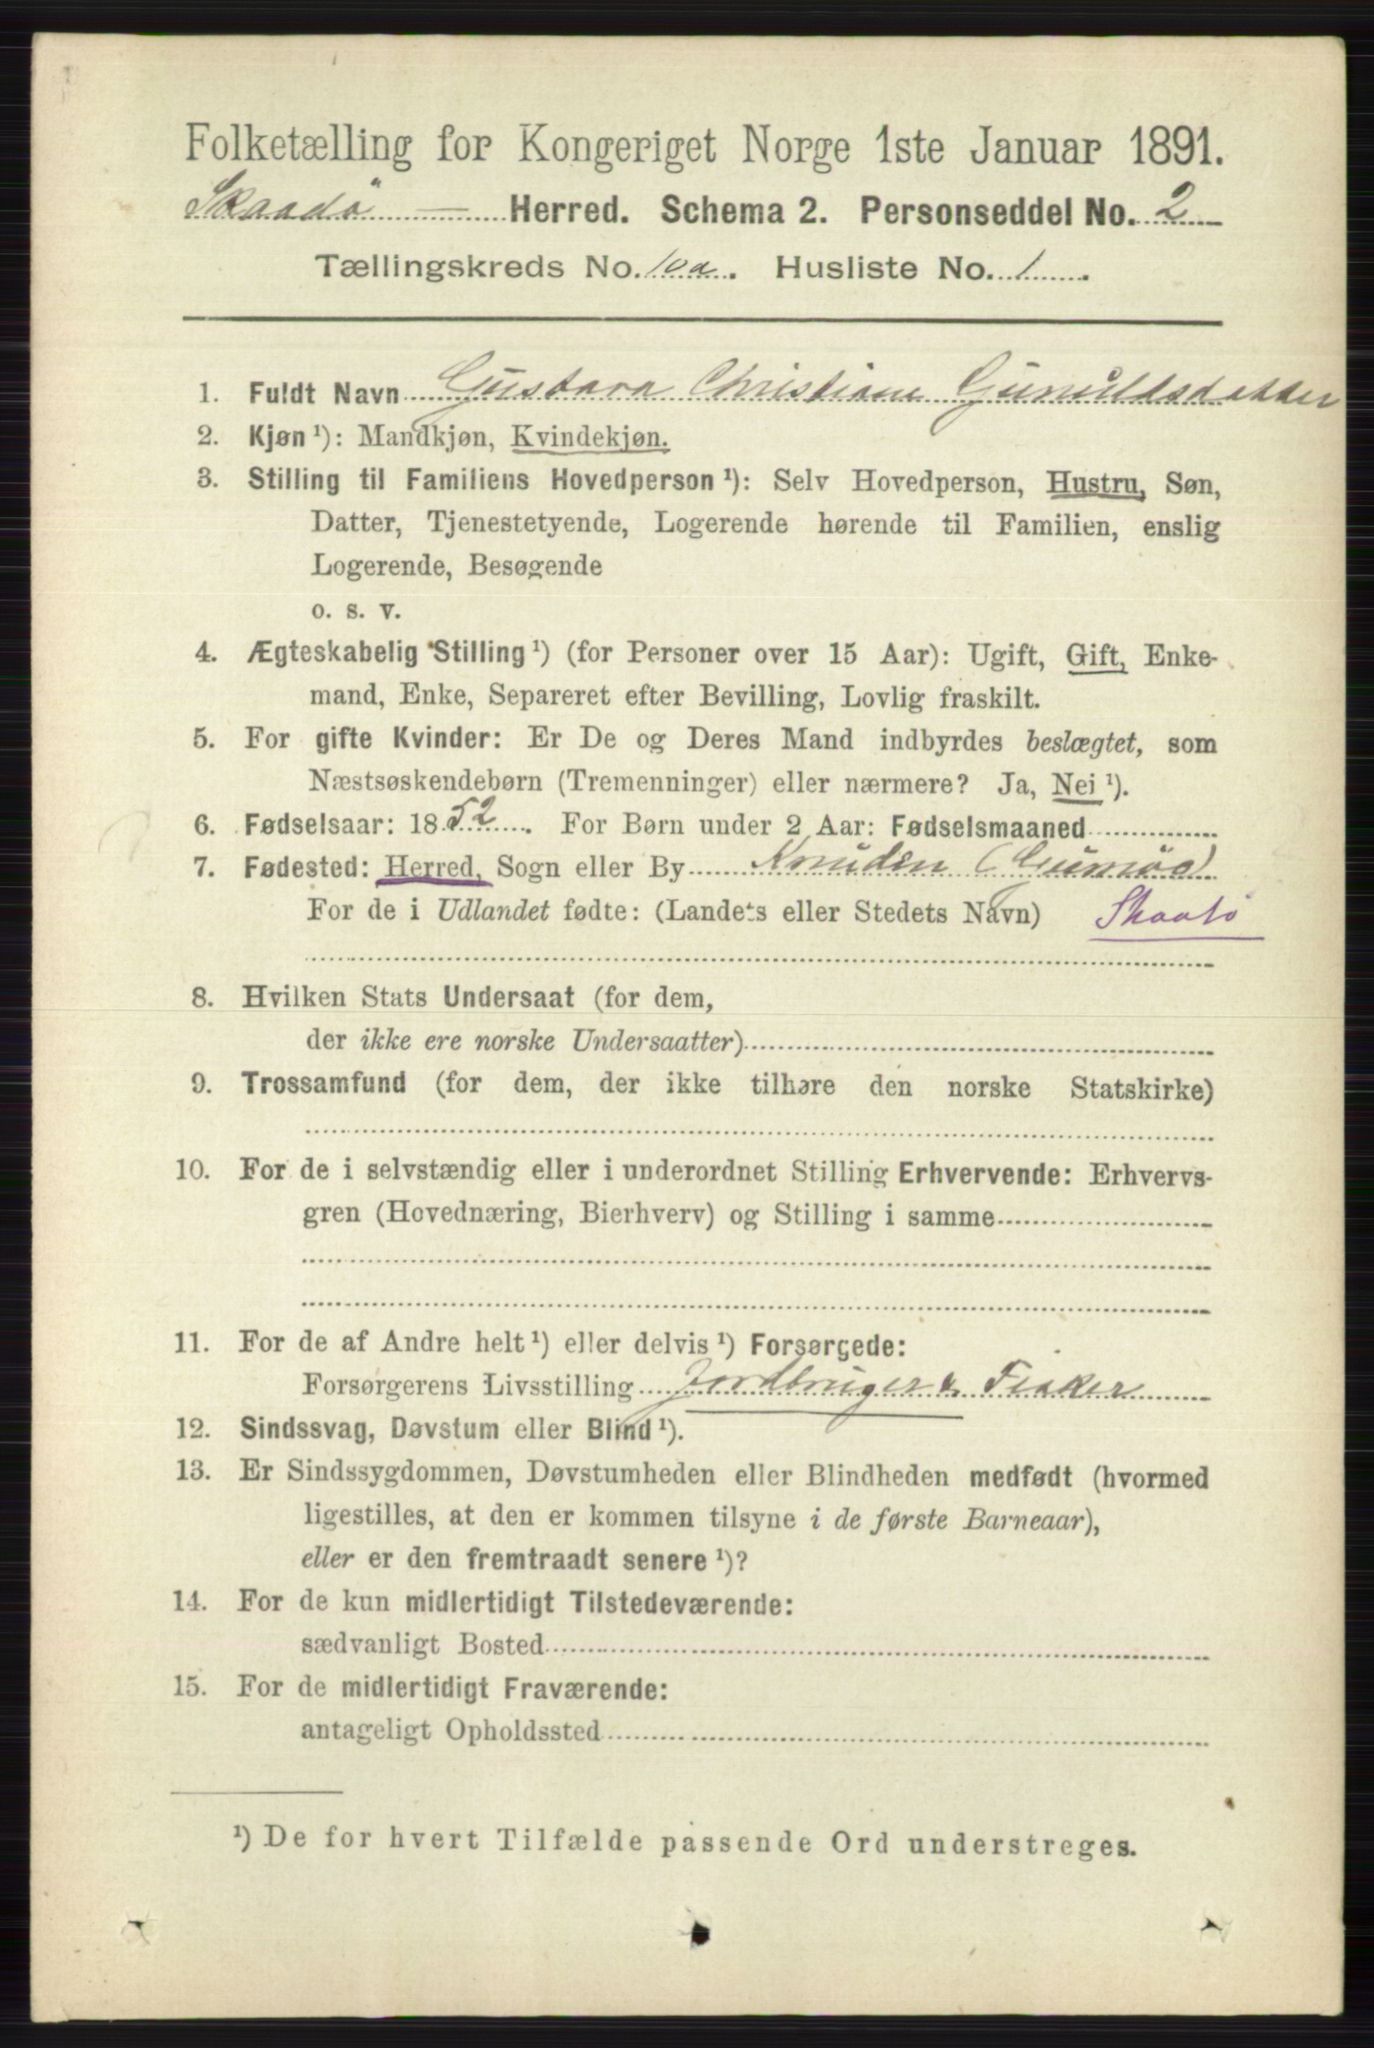 Folketælling for Kongeriget Norge 1ste Januar 1891.
Skaadö — Herred. Schema 2. Personseddel No. 2
Tællingskreds No. 10a. Husliste No. 1.
1. Fuldt Navn Gustava Christiane Gunuldsdatter
2. Kjøn ¹): Mandkjøn, Kvindekjøn.
3. Stilling til Familiens Hovedperson ¹): Selv Hovedperson, Hustru, Søn,
Datter, Tjenestetyende, Logerende hørende til Familien, enslig
Logerende, Besøgende
o. s. v.
4. Ægteskabelig Stilling ¹) (for Personer over 15 Aar): Ugift, Gift, Enke-
mand, Enke, Separeret efter Bevilling, Lovlig fraskilt.
5. For gifte Kvinder: Er De og Deres Mand indbyrdes beslægtet, som
Næstsøskendebørn (Tremenninger) eller nærmere? Ja, Nei ¹).
6. Fødselsaar: 1852. For Børn under 2 Aar: Fødselsmaaned
7. Fødested: Herred, Sogn eller By
For de i Udlandet fødte: (Landets eller Stedets Navn) Skaatö
8. Hvilken Stats Undersaat (for dem,
der ikke ere norske Undersaatter)
9. Trossamfund (for dem, der ikke tilhøre den norske Statskirke)
10. For de i selvstændig eller i underordnet Stilling Erhvervende: Erhvervs-
gren (Hovednæring, Bierhverv) og Stilling i samme
11. For de af Andre helt ¹) eller delvis ¹) Forsørgede:
Forsørgerens Livsstilling Jordbruger & Fisker
12. Sindssvag, Døvstum eller Blind ¹).
13. Er Sindssygdommen, Døvstumheden eller Blindheden medfødt (hvormed
ligestilles, at den er kommen tilsyne i de første Barneaar),
eller er den fremtraadt senere ¹)?
14. For de kun midlertidigt Tilstedeværende:
sædvanligt Bosted
15. For de midlertidigt Fraværende:
antageligt Opholdssted
¹) De for hvert Tilfælde passende Ord understreges.